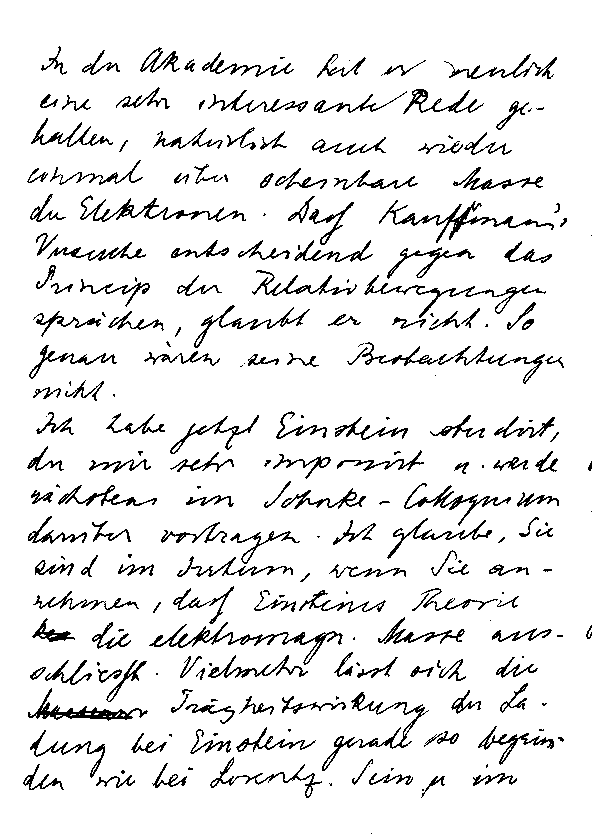 In der Akademie hat er neulich
eine sehr interessante Rede ge-
halten, natürlich auch wieder
einmal über scheinbare Masse
der Elektronen. Daß Kauffmann's
Versuche entscheidend gegen das
Princip der Relativbewegungen
sprächen, glaubt er nicht. So
genau wären seine Beobachtungen
nicht.
Ich habe jetzt Einstein studirt,
der mir sehr imponirt u. werde
nächstens im Sohnke-Colloquium
darüber vortragen. Ich glaube, Sie
sind im Irrtum, wenn Sie an-
nehmen, daß Einsteins Theorie
die elektromagn. Masse aus-
schliesst. Vielmehr lässt sich die
Trägheitswirkung der La-
dung bei Einstein gerade so begrün-
den wie bei Lorentz. Sein μ im